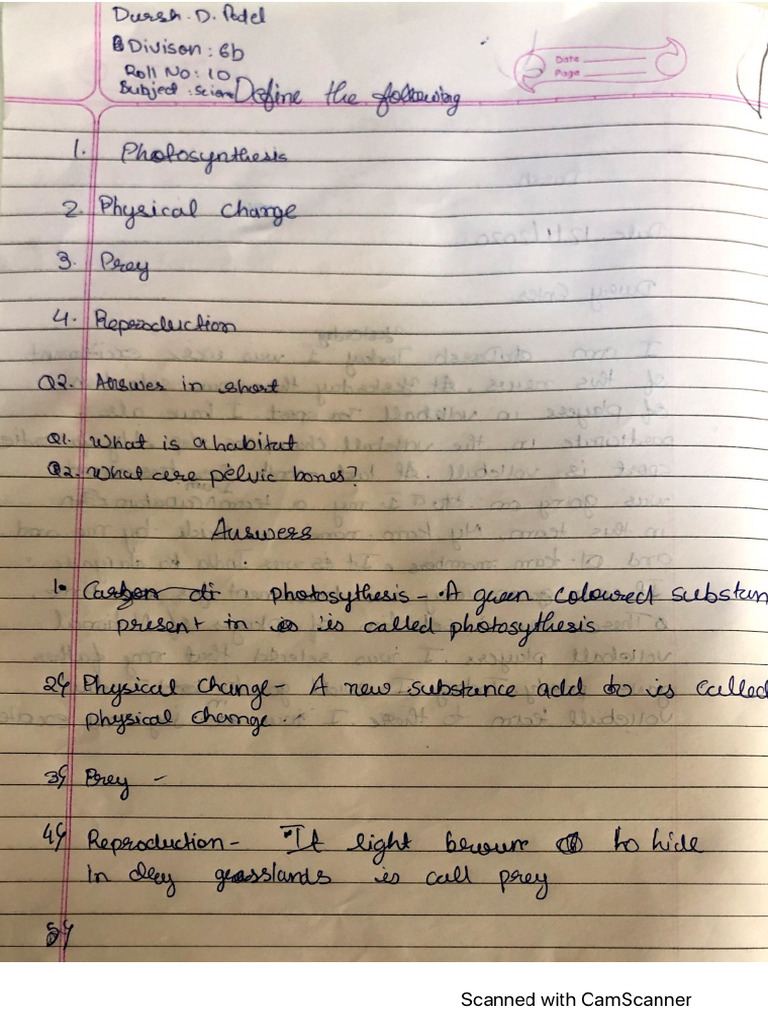 Dursh. D. Patel
Divison : 6b
Date
Roll No : 10
Page
Subject : Scien
Define the following
1. Photosynthesis
2. Physical Change
3. Prey
4. Reproduction
Q2. Answer in short
Q1. What is a habitat
Q2. What are pelvic bones?
Answers
1. Carbon di photosythesis - A green coloured substan
present in is is called photosythesis
2 Physical Change - A new substance add to is called
physical change.
3 Prey -
4 Reproduction - It light brown to hide
in dey grasslands is call prey
5
Scanned with CamScanner